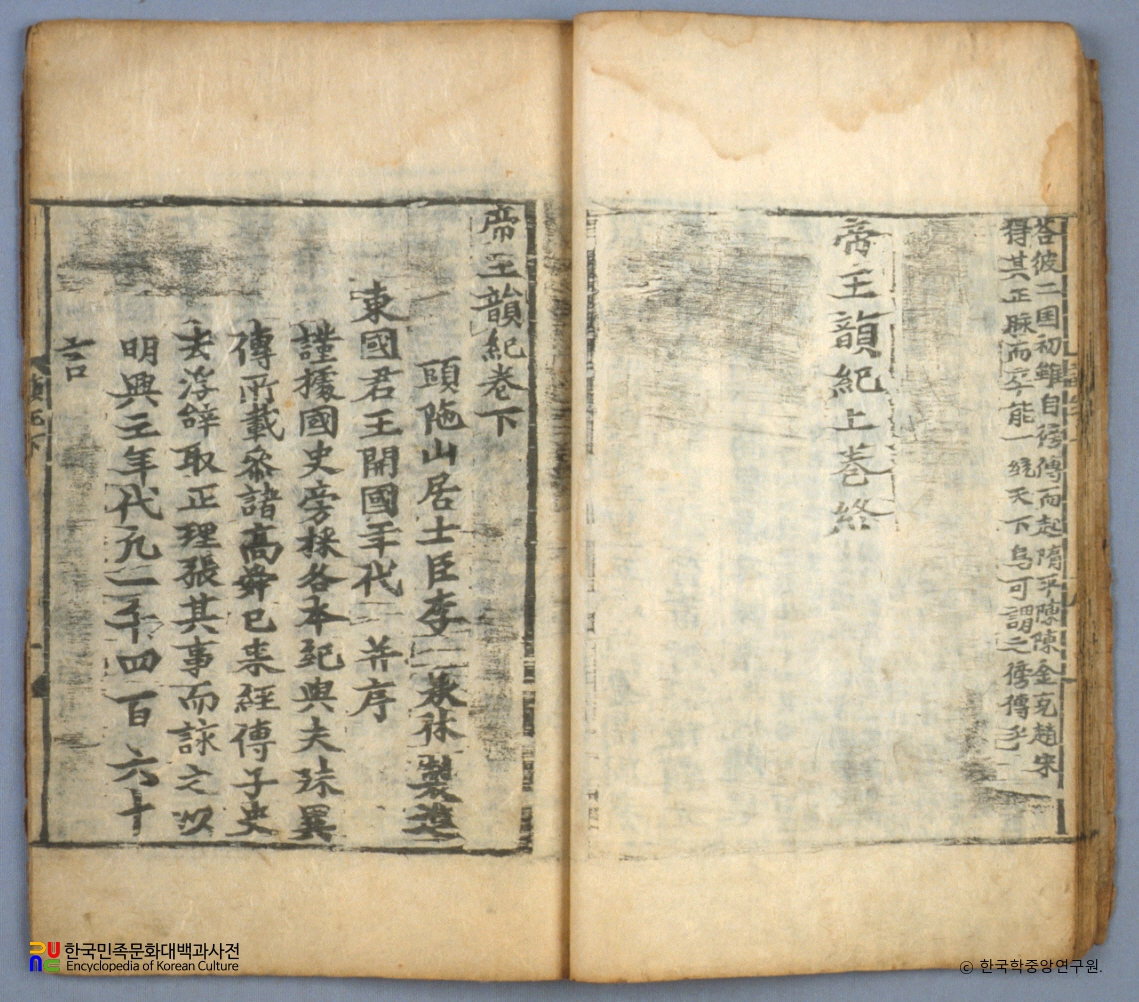 荅彼二国初雖自傍傳而起隋平陳陳金克趙宋
得其正脉而卒能一統天下烏可謂之傍傳乎
帝王韻紀上卷終
帝王韻紀卷下
頭陁山居士臣李承休製進
東國君王開國年代 并序
謹據國史旁採各本紀與夫殊異
傳所載叅諸堯舜已来經傳子史
去浮辝取正理張其事而詠之以
明興亡年代凢一千四百六十
言
한국민족문화대백과사전
Encyclopedia of Korean Culture
© 한국학중앙연구원.